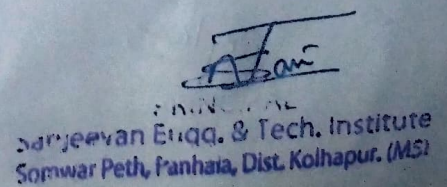 PRINCIPAL
Sanjeevan Engg. & Tech. Institute
Somwar Peth, Panhala, Dist. Kolhapur. (MS)